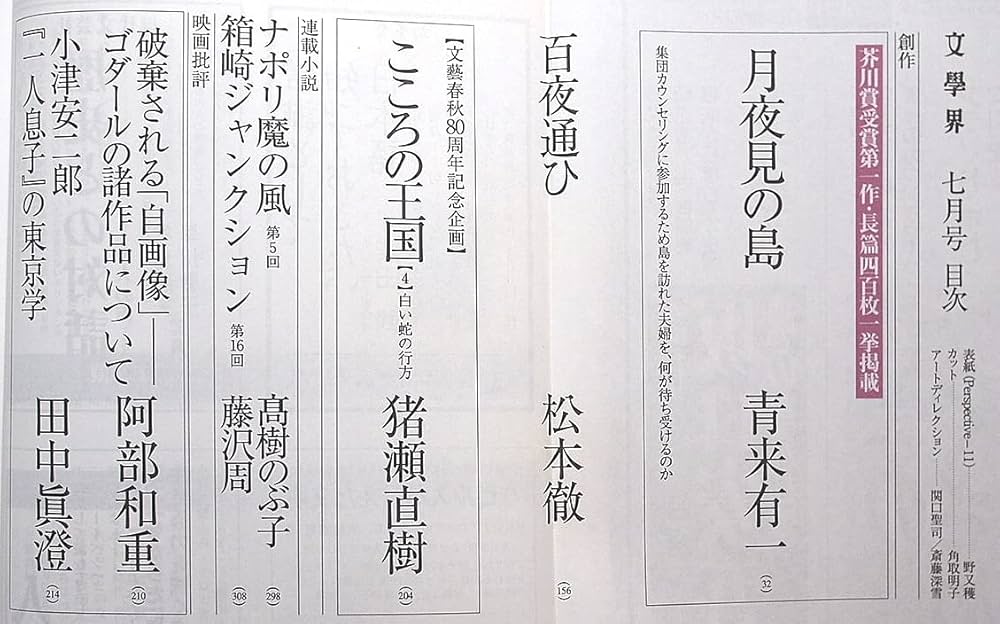 文學界 七月号 目次
表紙(Perspective-11)………野又穫
カット………角取明子
アートディレクション――関口聖司/斎藤深雪
創作
芥川賞受賞第一作・長篇四百枚一挙掲載
月夜見の島 青来有一 (32)
集団カウンセリングに参加するため島を訪れた夫婦を、何が待ち受けるのか
百夜通ひ 松本徹 (156)
【文藝春秋80周年記念企画】
こころの王国【4】白い蛇の行方 猪瀬直樹 (204)
連載小説
ナポリ魔の風 第5回 髙樹のぶ子 (298)
箱崎ジャンクション 第16回 藤沢周 (308)
映画批評
破棄される「自画像」――
ゴダールの諸作品について 阿部和重 (210)
小津安二郎
『一人息子』の東京学 田中眞澄 (214)